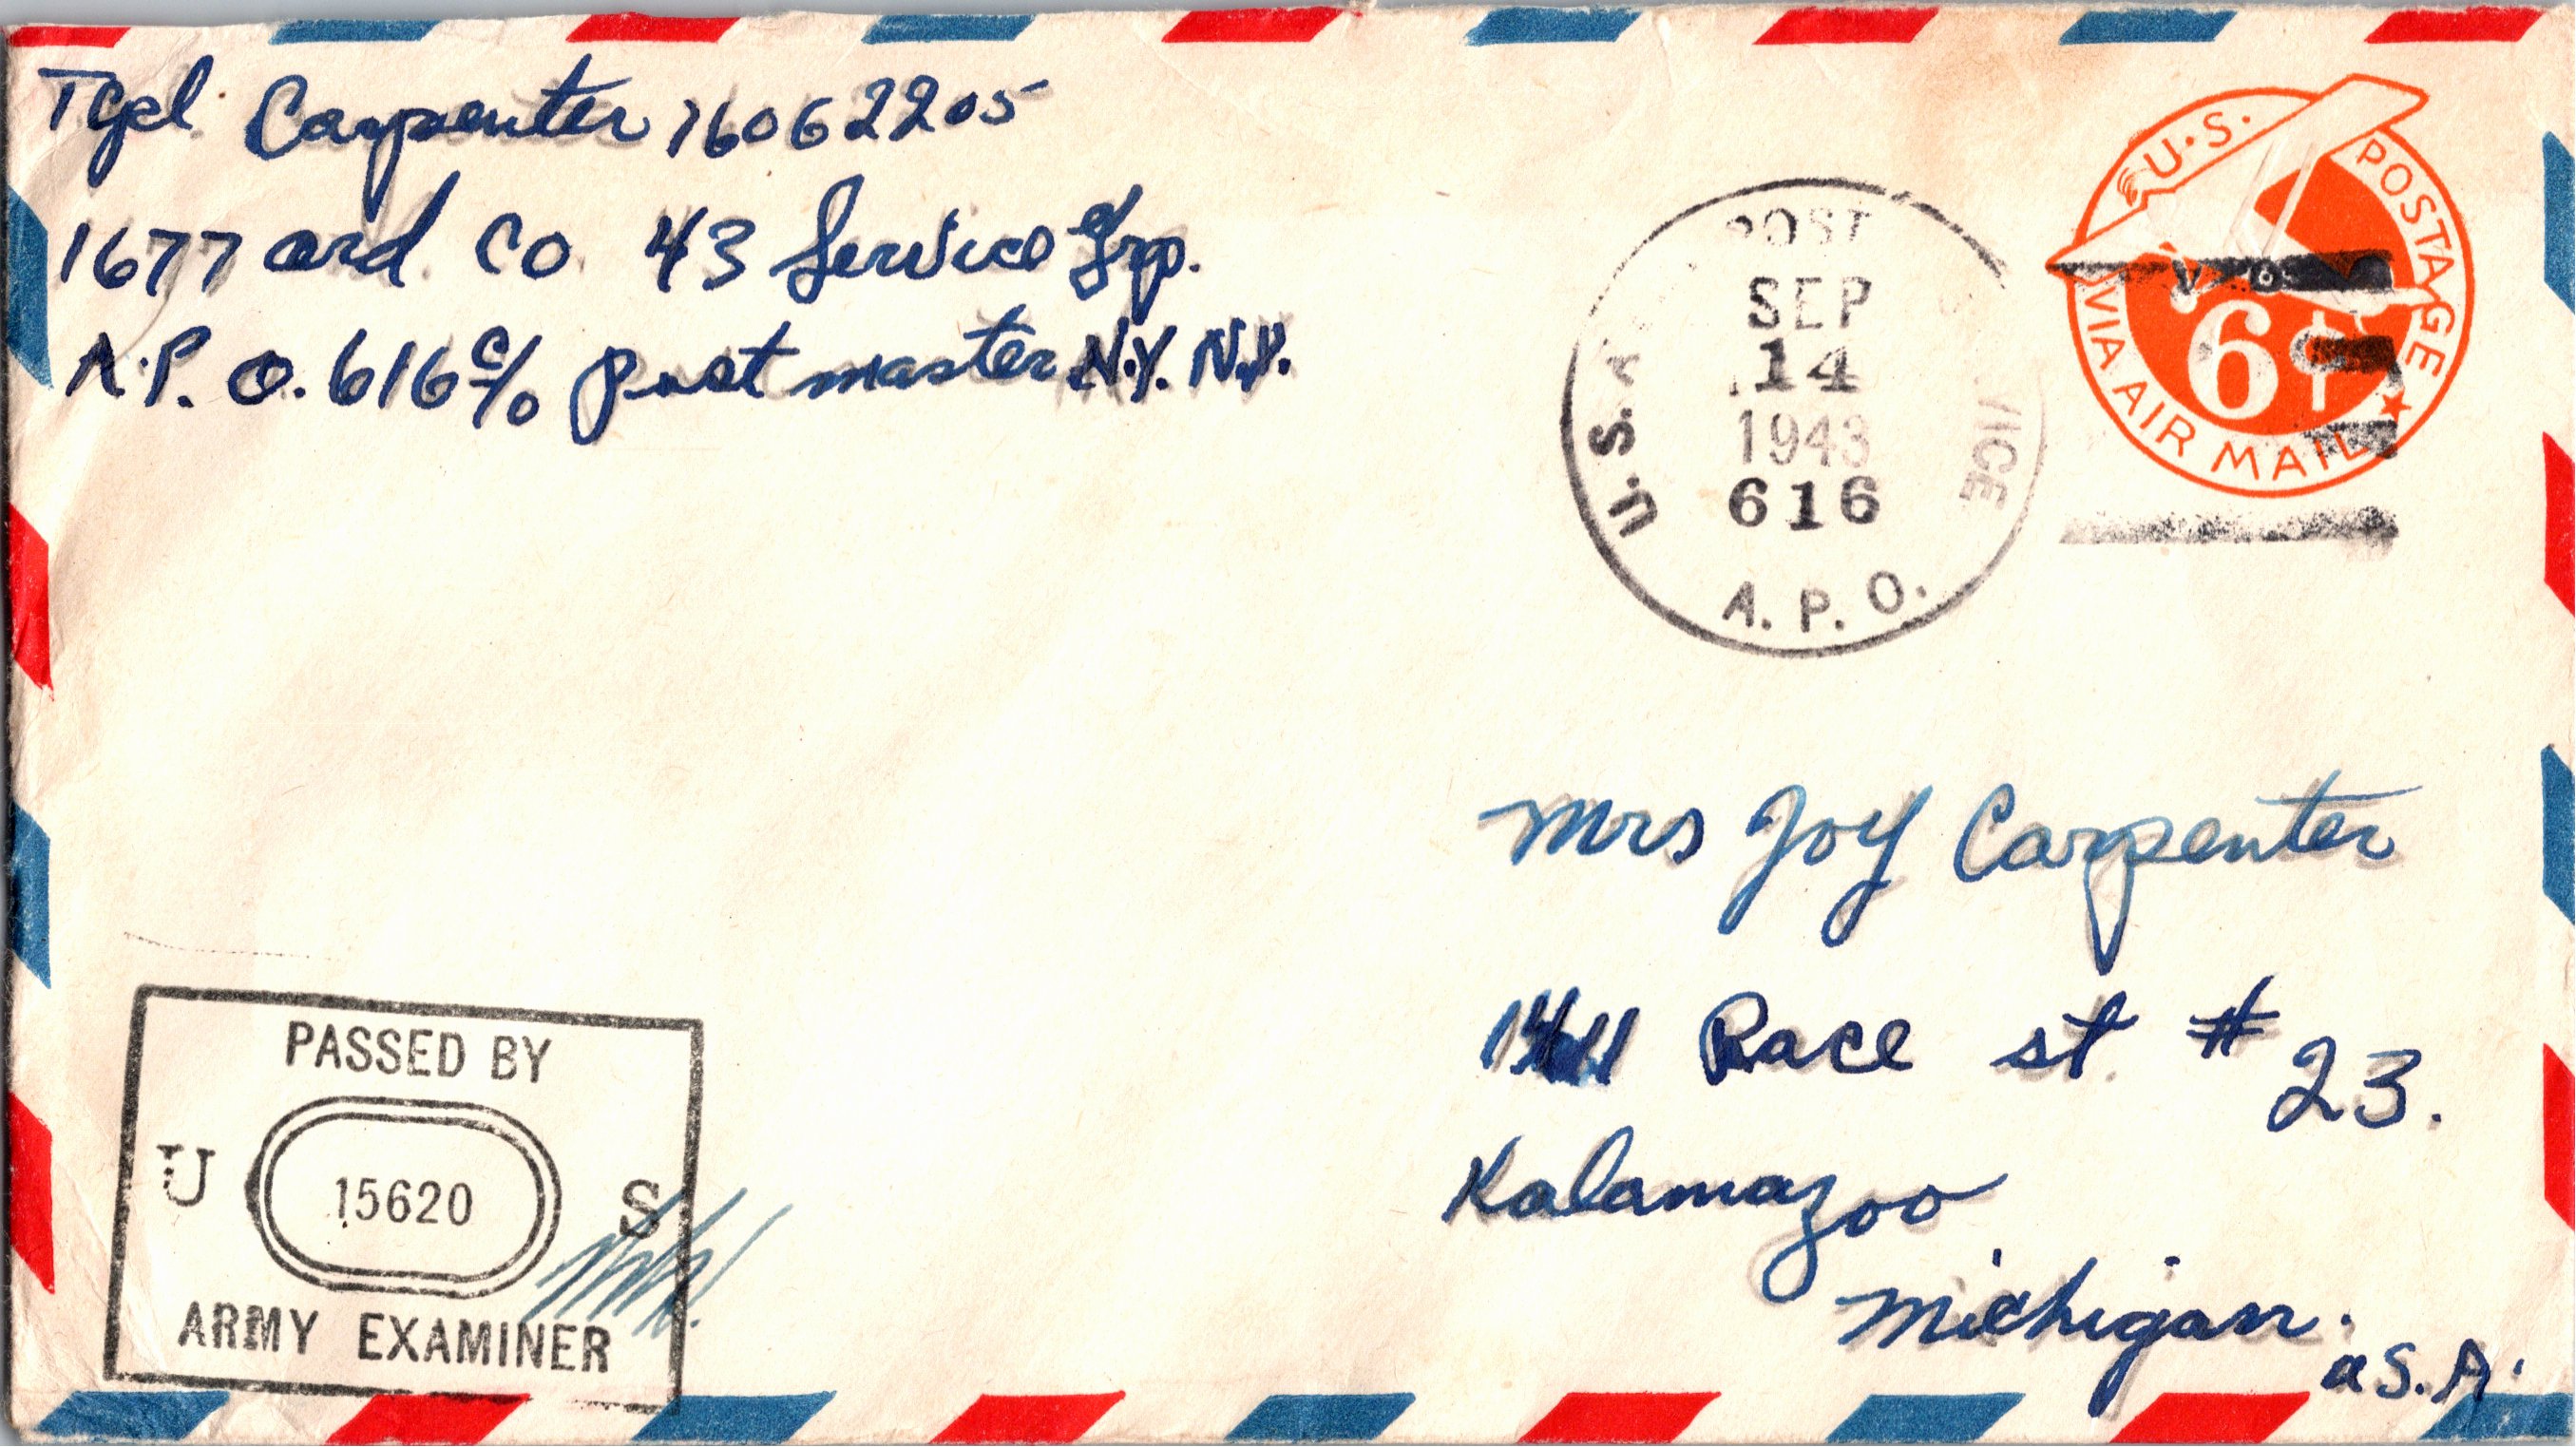 Tcpl. Carpenter 16062205
1677 ord. Co. 43 Service Grp.
A.P.O. 616 c/o Postmaster N.Y. N.Y.
U.S. POSTAGE
6¢
VIA AIR MAIL
POST
U.S. A
VICE
SEP
14
1943
616
A. P. O.
Mrs Joy Carpenter
Race st. # 23.
Kalamazoo
Michigan.
U.S.A.
PASSED BY
U 15620 S
ARMY EXAMINER